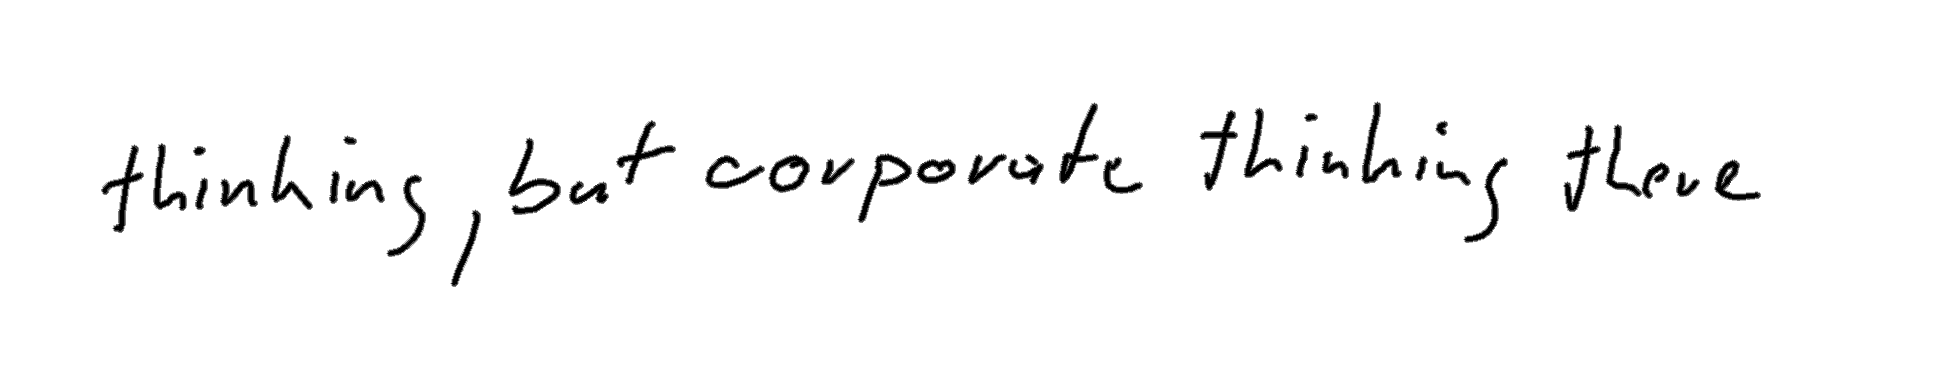 thinking, but corporate thinking there